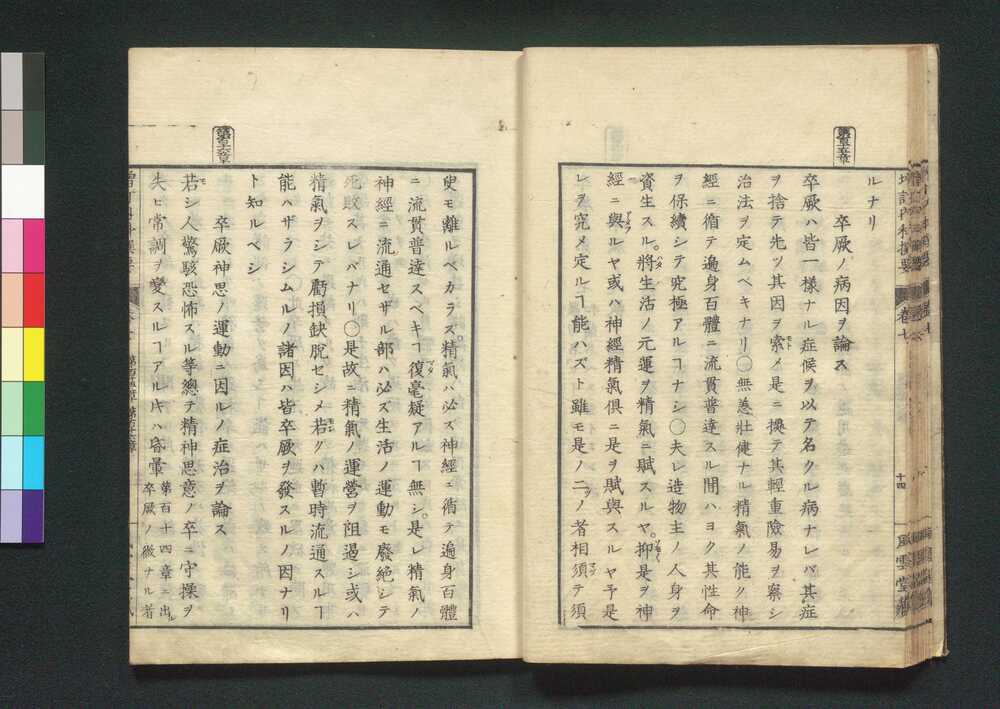 ルナリ
卒厥ノ病因ヲ論ス
卒厥ハ皆一樣ナル症候ヲ以テ名クル病ナレバ其症
ヲ捨テ先ツ其因ヲ索メ是ニ據テ其輕重險易ヲ察シ
治法ヲ定ムベキナリ〇無恙壯健ナル精氣ノ能ク神
經ニ循テ遍身百體ニ流貫普達スル間ハヨク其性命
ヲ保續シテ究極アルヿナシ〇夫レ造物主ノ人身ヲ
資生スル。將生活ノ元運ヲ精氣ニ賦スルヤ。抑是ヲ神
經ニ與ルヤ或ハ神經精氣俱ニ是ヲ賦與スルヤ予是
レヲ究メ定ルヿ能ハズト雖モ是ノ二ノ者相須テ須
十四
臾モ離ルベカラス。精氣ハ必ズ神經ニ循テ遍身百體
ニ流貫普達スベキヿ復毫疑アルヿ無シ。是レ精氣ノ
神經ニ流通セザル部ハ必ズ生活ノ運動モ廢絶シテ
死敗スレバナリ〇是故ニ精氣ノ運營ヲ阻遏シ或ハ
精氣ヲシテ虧損缺脫セシメ若クハ暫時流通スルヿ
能ハザラシムルノ諸因ハ皆卒厥ヲ發スルノ因ナリ
ト知ルベシ
卒厥神思ノ運動ニ因ルノ症治ヲ論ス
若シ人驚駭恐怖スル等總テ精神思意ノ卒ニ守操ヲ
失ヒ常調ヲ變スルヿアルキハ昏暈
第百十四章ニ出ル
卒厥ノ微ナル者